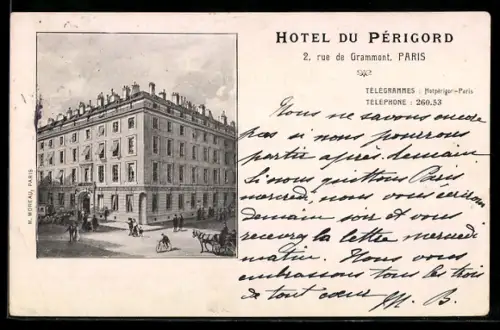 HOTEL DU PÉRIGORD
2, rue de Grammont, PARIS
TÉLÉGRAMMES : Hotpérigor-Paris
TÉLÉPHONE : 260.53
R. MOREAU, PARIS
Nous ne savons encore
pas si nous pourrons
partir après demain
Si nous quittons Paris
mercredi, nous vous écrirons
demain soir et vous
recevrez la lettre mercredi
matin. Nous vous
embrassons tous les trois
de tout cœur M. B.